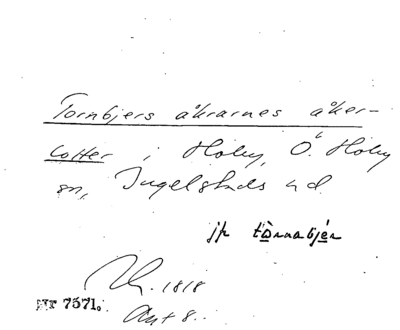 Tornbjers åkrarnes åker-
lotter i Hoby, Ö. Hoby
sn, Ingelstads hd.
jfr
1818
nr 7571.
Akt 8.